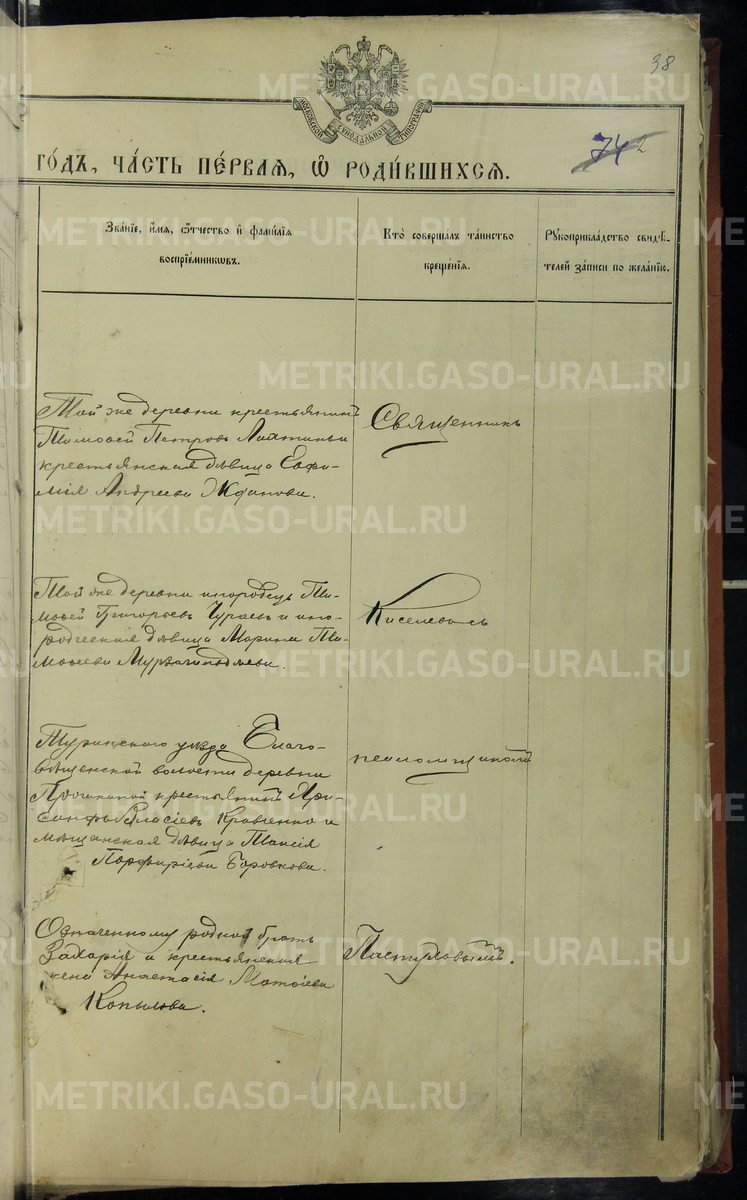 38
МОСКОВСКОЙ СѴНОДАЛЬНОЙ ТИПОГРАФІИ
74
ГО́ДЪ, ЧА́СТЬ ПЕ́РВАЯ, Ѡ РОДИ́ВШИХСЯ.
Зва́ніе, и́мѧ, ѻ҆́тчество и҆ фами́лїѧ
воспрїе́мникѡвъ.
Кто̀ соверша́лъ та́инство
креще́нїѧ.
Рꙋкоприкла́дство свидѣ́-
телей за́писи по жела́нїю.
Той же деревни крестьянинъ
Тимоѳей Петровъ и
крестьянская дѣвица Евфи-
мія Андреева Жданова.
Священникъ
Той же деревни инородецъ Ти-
моѳей Григорьевъ Чураевъ и ино-
родческая дѣвица Марина Ти-
моѳеева
Киселевъ съ
Туринскаго уѣзда Благо-
вѣщенской волости деревни
крестьянинъ Хри-
санфъ Власіевъ Кравченко и
мѣщанская дѣвица Таисія
Парфиріева Боровкова.
псаломщикомъ
Означенному родной братъ
Захарія и крестьянская
жена Анастасія Матѳіева
Копылова.
Пастуховымъ.
METRIKI.GASO-URAL.RU